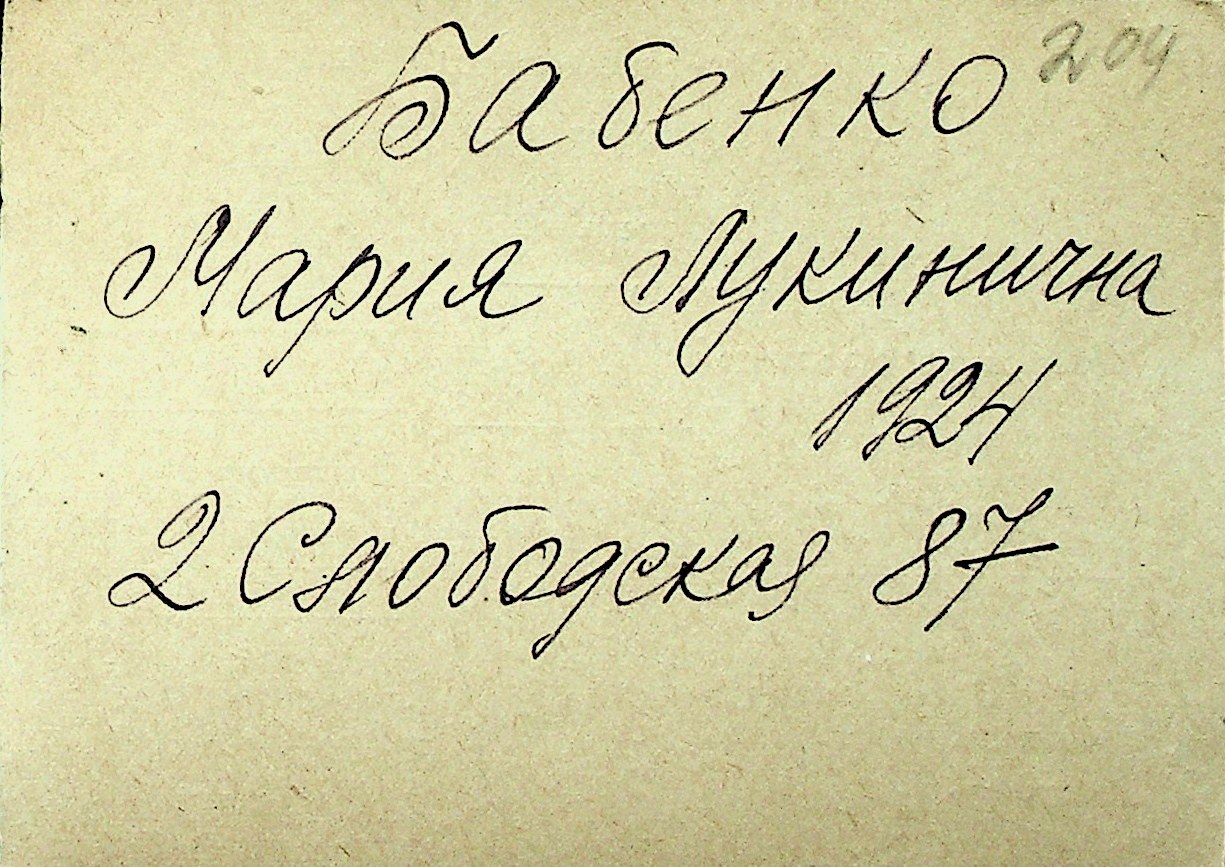 Бабенко 204
Мария Лукинична
1924
2 Слободская 87